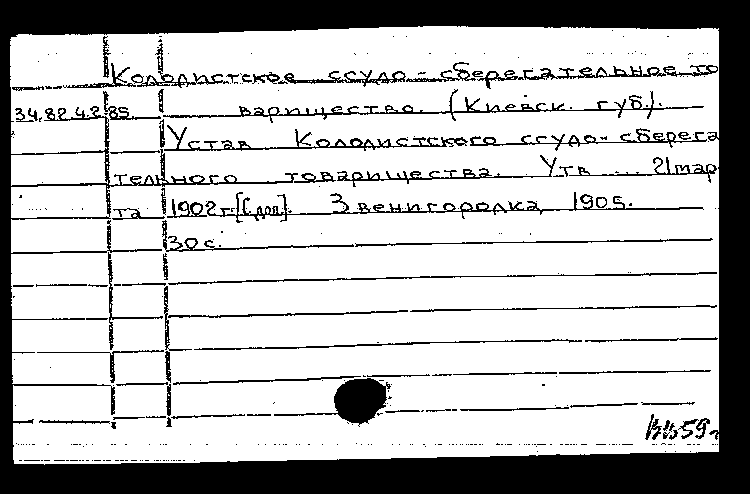 Колодистское ссудо-сберегательное то
34.82.4.2.85. варищество. (Киевск. губ.).
Устав Колодистского ссудо-сберега
тельного товарищества. Утв.... 21 мар-
та 1902 г. [С доп.]. Звенигородка, 1905.
30 с.